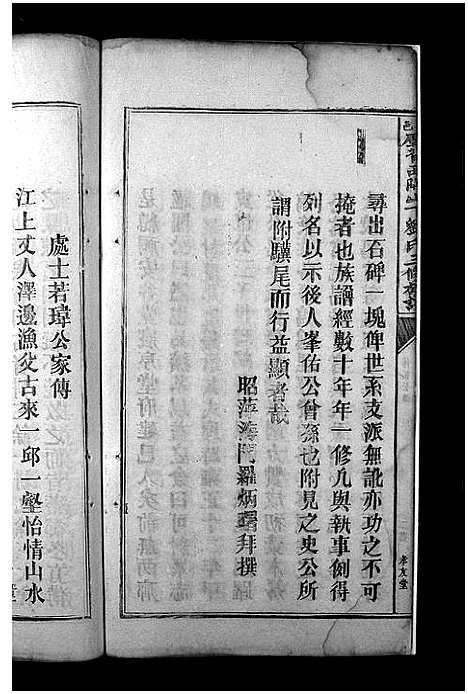 尋出石碑一塊俾世系支派無訛亦功之不可
掩者也族譜經數十年年一修凡與執事例得
列名以示後人峯佑公曾孫也附見之史公所
謂附驥尾而行益顯者哉
昭萍海門羅炳曙拜撰
孝友堂
處士若瑋公家傳
江上丈人澤邊漁父古來一邱一壑怡情山水